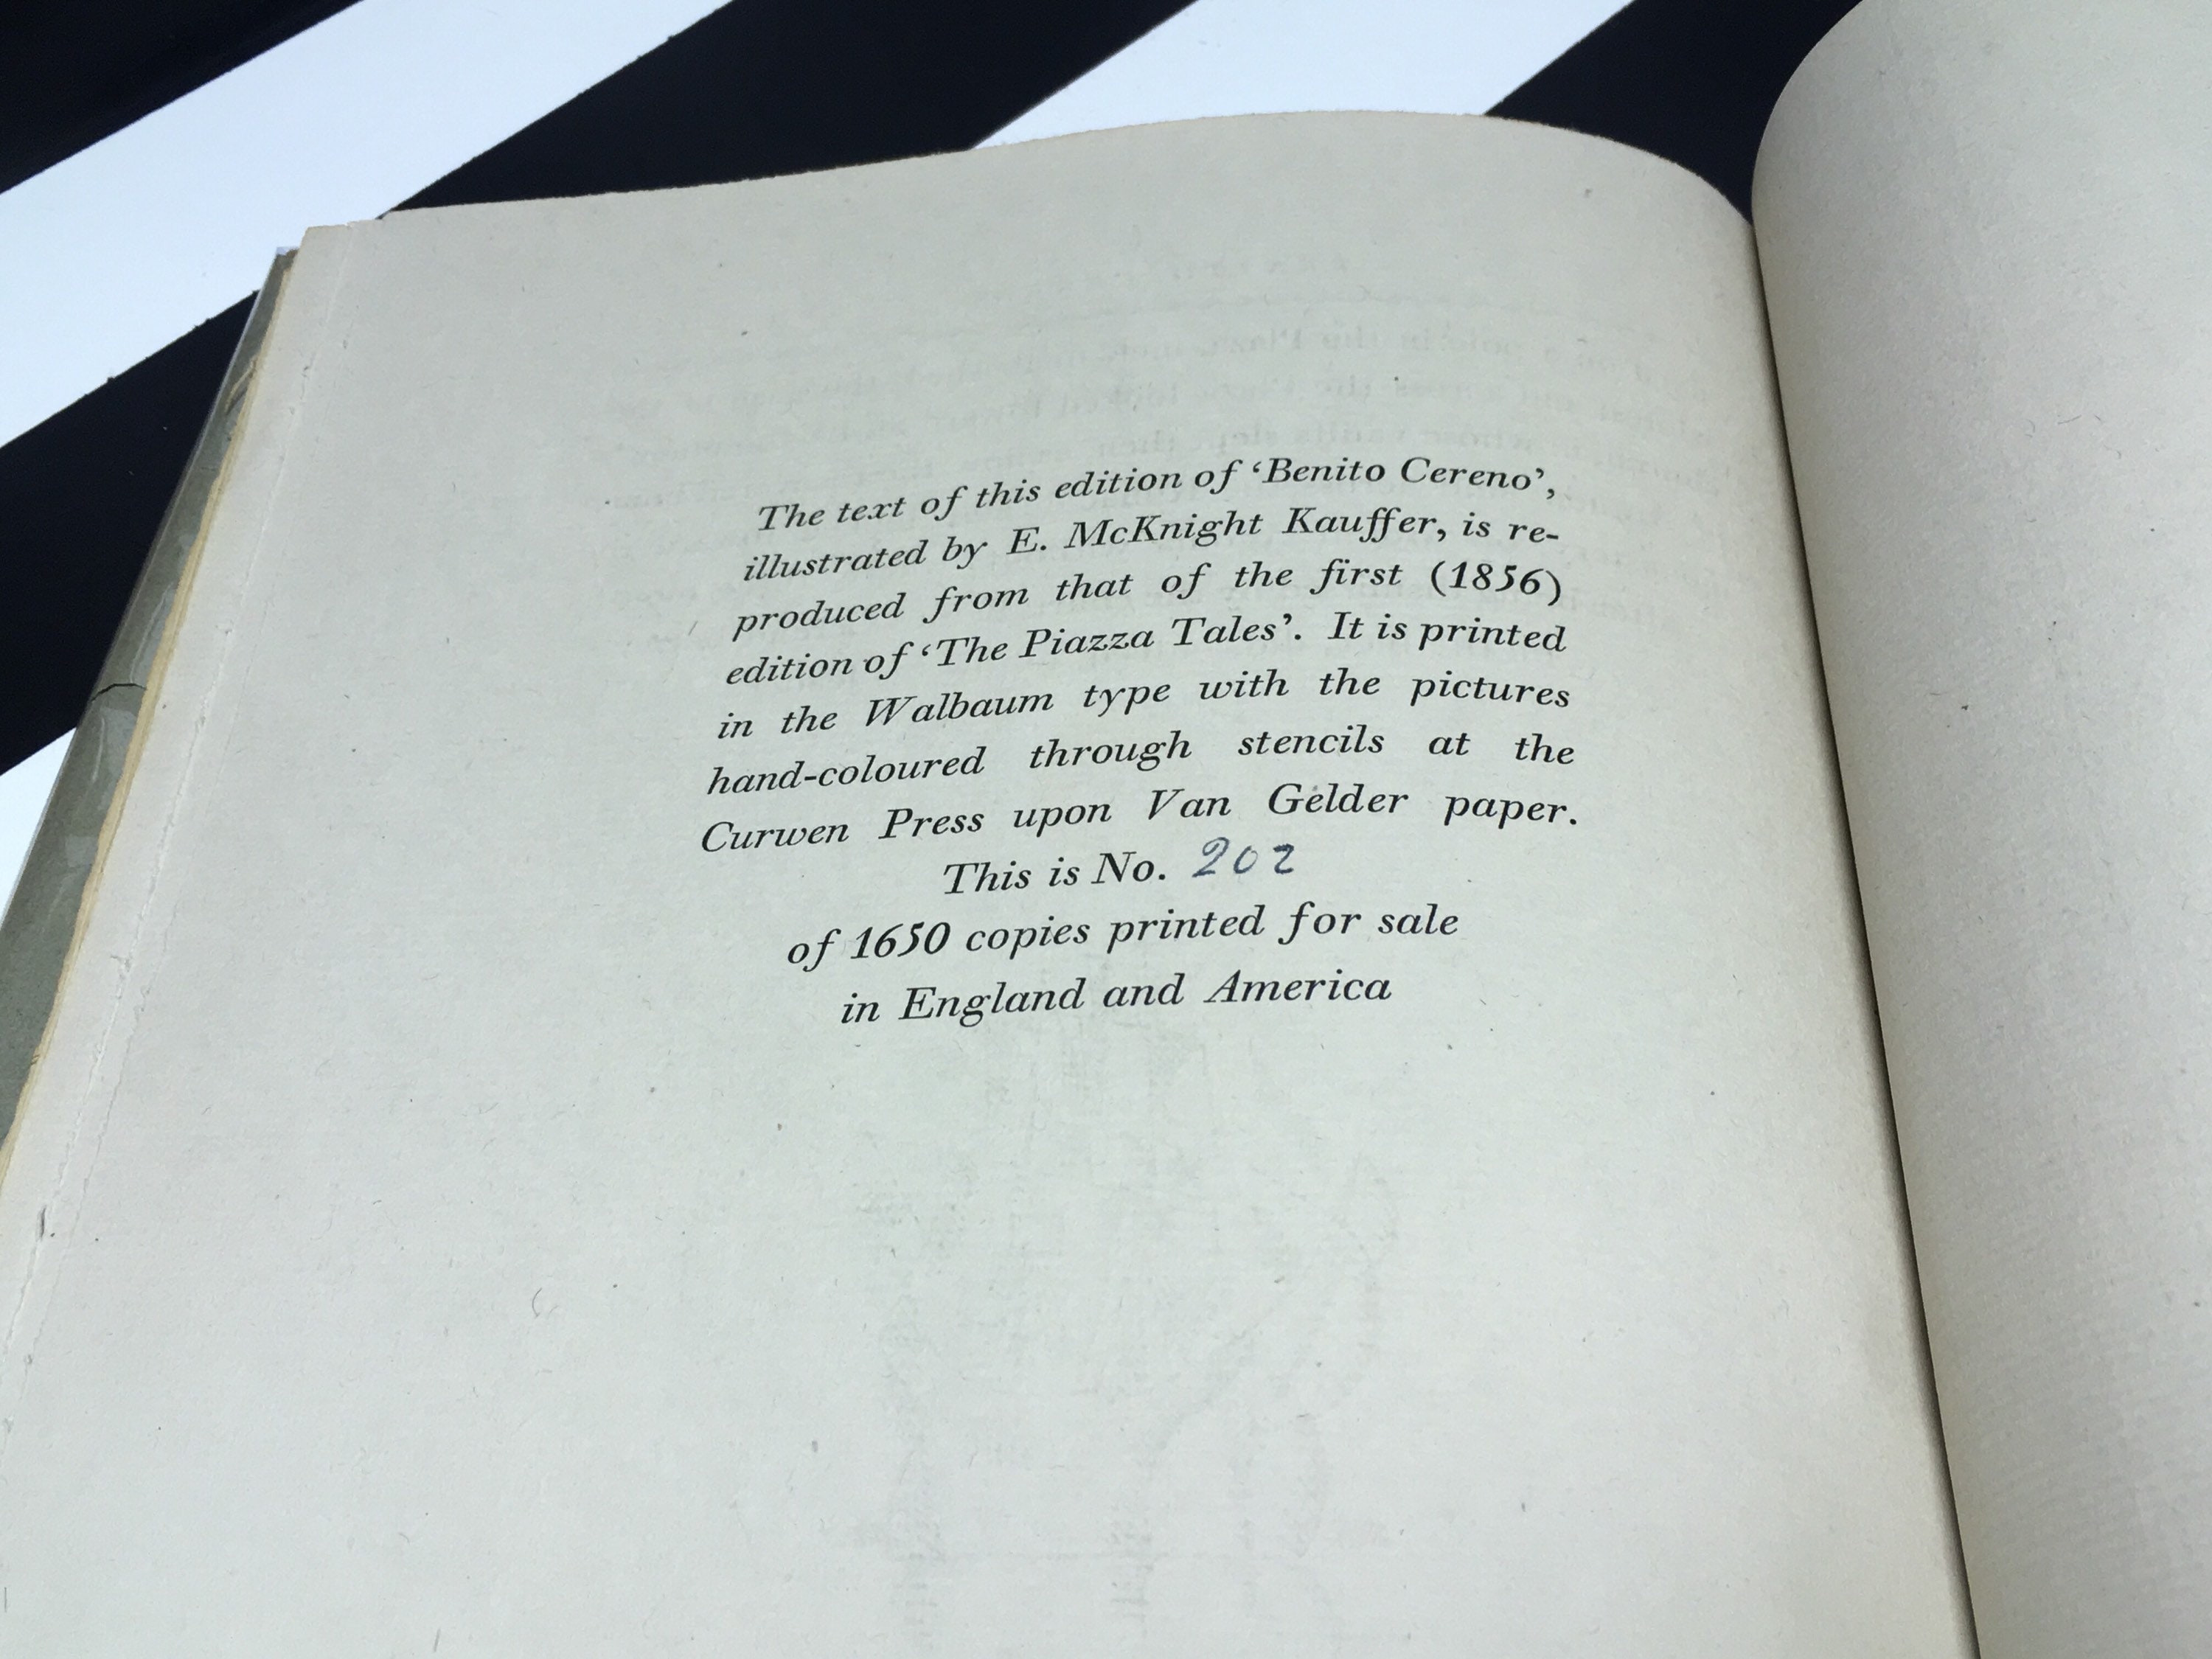 The text of this edition of ‘Benito Cereno’,
illustrated by E. McKnight Kauffer, is re-
produced from that of the first (1856)
edition of ‘The Piazza Tales’. It is printed
in the Walbaum type with the pictures
hand-coloured through stencils at the
Curwen Press upon Van Gelder paper.
This is No. 202
of 1650 copies printed for sale
in England and America